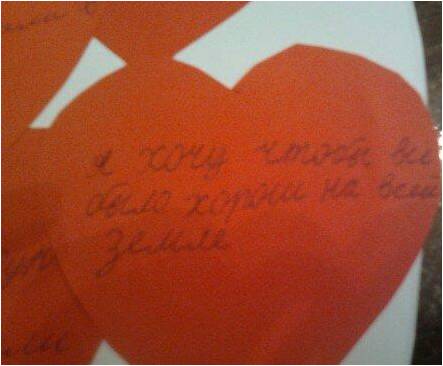 я хочу чтобы
было хорош на всей
земле